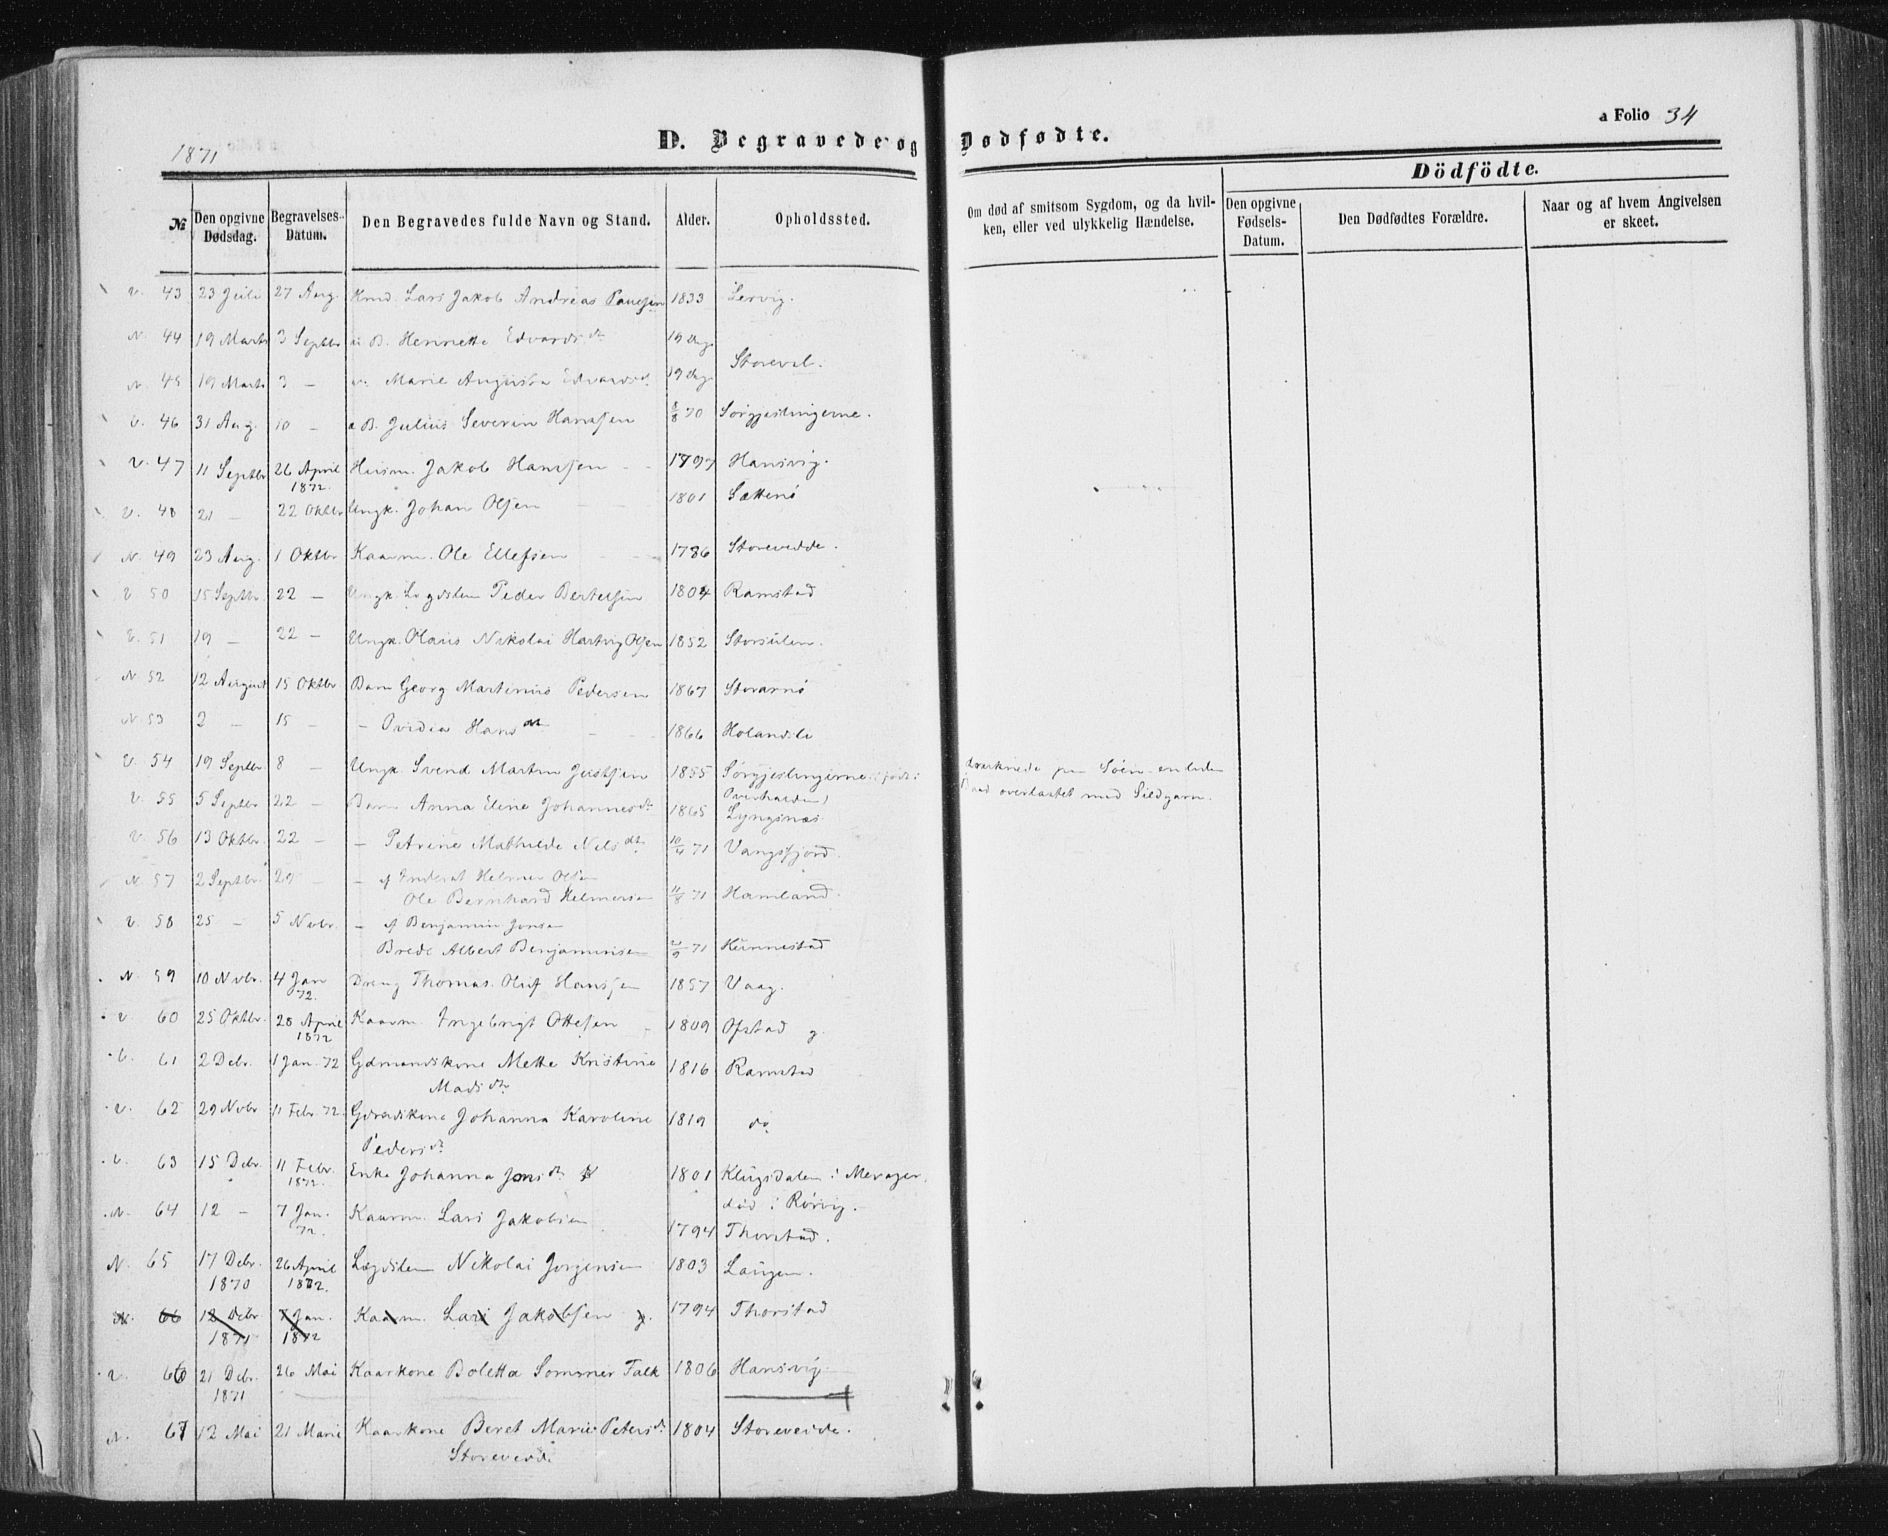 a Folio 34
1871
D. Begravede og Dødfødte.
Dödfödte.
№
Den opgivne Dødsdag.
Begravelses-Datum.
Den Begravedes fulde Navn og Stand.
Alder.
Opholdssted.
Om død af smitsom Sygdom, og da hvilken, eller ved ulykkelig Hændelse.
Den opgivne Fødsels-Datum.
Den Dødfødtes Forældre.
Naar og af hvem Angivelsen er skeet.
v. 43 23 Juli 27 Aug. Lars Jakob Andreas 1833 Lervig.
N. 44 19 Marts 3 Septbr u B. Henriette Edvardsdt 19 Dage
N. 45 19 Marts 3 — Marie Augusta Edvardsdt 19 Dage Storeval.
v. 46 31 Aug. 10 — u B. Julius Severin Hanssen 8/8 70 Sørgjeslingerne.
v. 47 11 Septbr 26 April 1872 Husm. Jakob Hanssen 1797 Hansvig.
v. 48 21 — 22 Oktbr Ungk. Johan Olsen 1801 Sættenø
N. 49 23 Aug. 1 Oktbr Kaarm. Ole Ellefsen 1786 Storevedde.
v. 50 15 Septbr. 22 — Ungk. Lægdslem Peder Bertelsen 1804 Ramstad
v. 51 19 — 22 — Ungk. Olaus Nikolai Hartvig Olsen 1852 Storsulen.
N. 52 12 August 15 Oktbr Barn Georg Martinus Pedersen 1867 Storarnø
N. 53 2 — 15 — — Ovidia Hansdt 1866
v. 54 19 Septbr. 8 — Ungk. Svend Martin Justsen 1855 Sørgjeslingerne (: født i Overhalden)
druknede paa Søen en liden
Baad overlastet med Sildgarn.
v. 55 5 Septbr 22 — Barn Anna Eline Johannesdt 1865 Lyngsnæs
v. 56 13 Oktbr. 22 — — Petrine Mathilde Nilsdt. 10/4 71 Vangsfjord.
N. 57 2 Septbr. 29 — — af Inderst Helmer Olsen
Ole Bernhard Helmersen 11/8 71 Hamland.
v. 58 25 — 5 Novbr. — af Benjamin Jonsen
Brede Albert Benjaminsen 71 Kunnestad
N. 59 10 Novbr. 4 Jan 72. Dreng Thomas Oluf Hanssen 1857 Vaag.
v. 60 25 Oktbr. 28 April 1872 Kaarm. Ingebrigt Ottesen 1809 Ofstad g
v. 61 2 Debr. 1 Jan. 72 Gdmandskone Mette Kristine
Madsdtr 1816 Ramstad
v. 62 29 Novbr 11 Febr. 72. Johanna Karoline
Pedersdt 1819 do
v. 63 15 Debr. 11 Febr. 1872. Enke Johanna Jonsdt 1801 i Mevager.
død i Rørvig.
N. 64 12 — 7 Jan. 72. Kaarm. Lars Jakobsen 1794 Thorstad.
N. 65 17 Debr. 1870 26 April 1872. Lægdslem Nikolai Jørgensen 1803 Laugen.
N. 66 12 Debr 1871 7 Jan. 1872 Kaarm. Lars Jakobsen g. 1794 Thorstad
v. 66 21 Debr. 1871 26 Mai Kaarkone Boletta Sommer Falk 1806 Hansvig.
N. 67 12 Mai 21 Kaarkone Beret Marie Petersdt 1804 Storevedde.
Storevedde